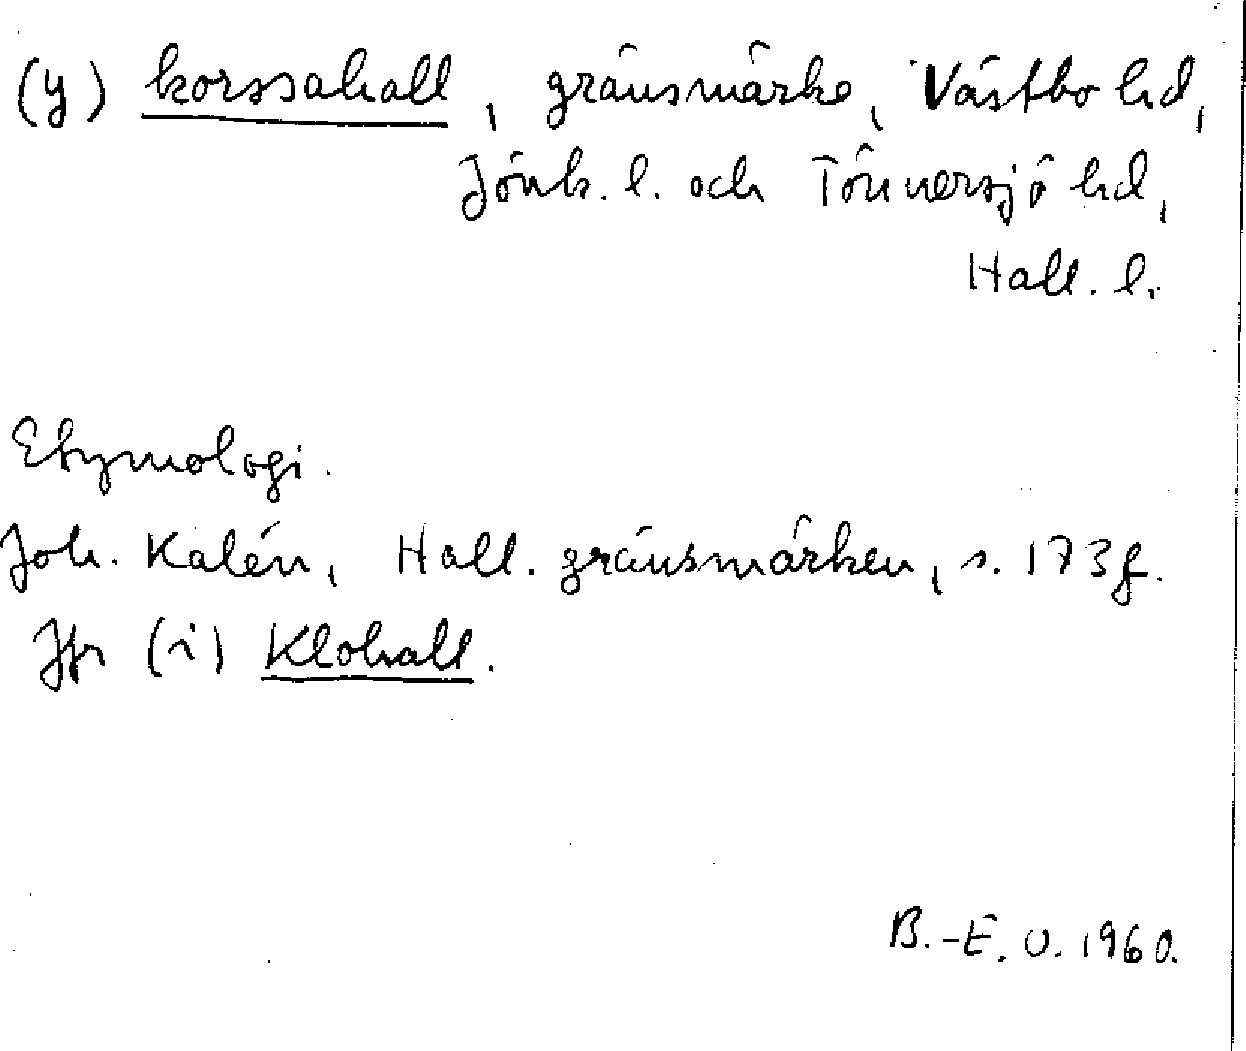 (y) korssahall, gränsmärke, Västbo hd,
Jönk. l. och Tönnersjö hd,
Hall. l.
Etymologi.
Joh. Kalén, Hall. gränsmärken, s. 173 f.
Jfr (i) Klohall.
B.-E. O. 1960.